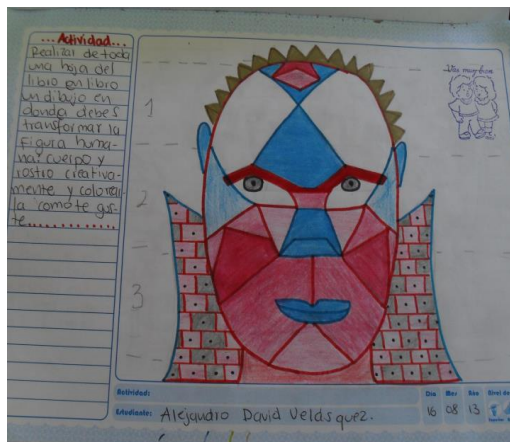 ...Actividad...
Realizar de toda
una hoja del
libro en libro
un dibujo en
donde debes
transformar la
figura huma-
na: cuerpo y
rostro creativa-
mente y colorear
la como te gus-
te..............
1
2
3
Vas muy bien
Actividad:
Estudiante: Alejandro David Velásquez.
Día Mes Año
16 08 13